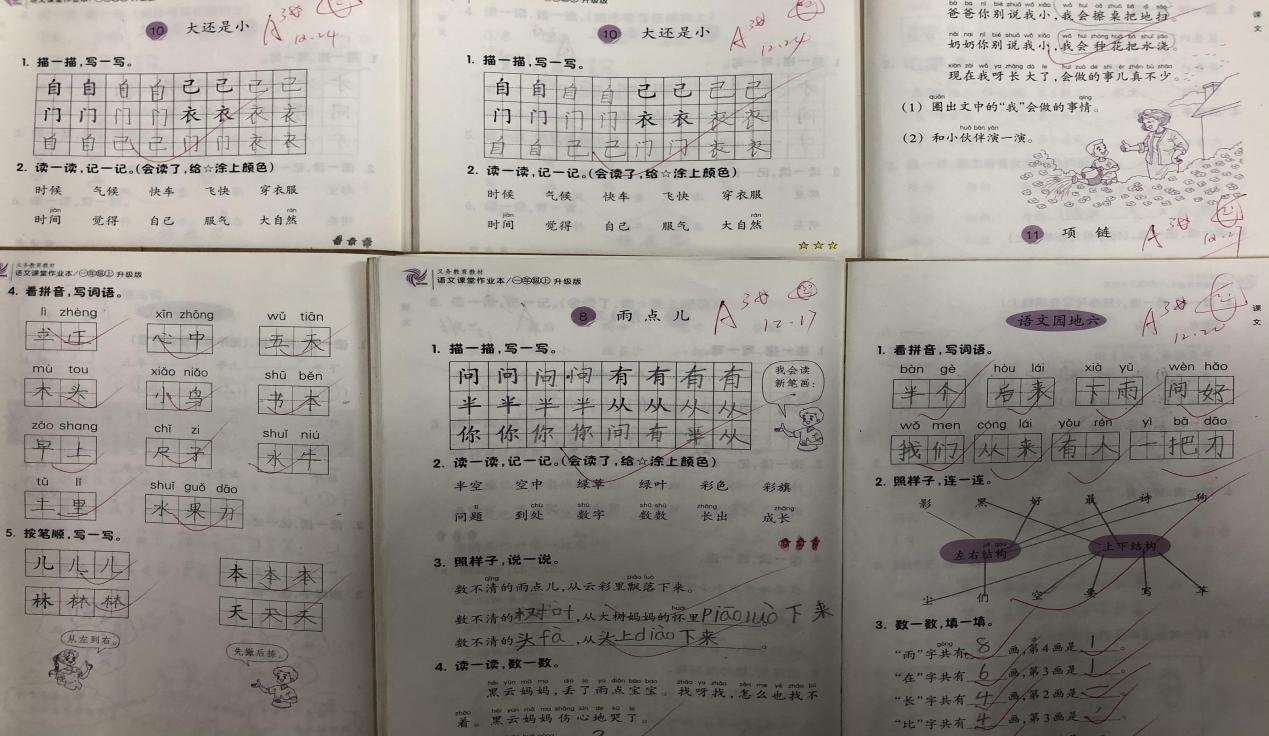 10 大还是小 A 3好 12.24
1. 描一描,写一写。
自 自 自 自 己 己 己 己
门 门 门 门 衣 衣 衣 衣
自 自 己 己 门 门 衣 衣
2. 读一读,记一记。(会读了,给☆涂上颜色)
时候 气候 快车 飞快 穿衣服
jiān rán
时间 觉得 自己 服气 大自然
10 大还是小 A 3好 12.24
1. 描一描,写一写。
自 自 自 自 己 己 己 己
门 门 门 门 衣 衣 衣 衣
自 自 己 己 门 门 衣 衣
2. 读一读,记一记。(会读了,给☆涂上颜色)
时候 气候 快车 飞快 穿衣服
jiān rán
时间 觉得 自己 服气 大自然
爸爸你别说我小,我会擦桌把地扫。
nǎi nai nǐ bié shuō wǒ xiǎo wǒ huì zhòng huā bǎ shuǐ jiāo
奶奶你别说我小,我会种花把水浇。
xiàn zài wǒ ya zhǎng dà le huì zuò de shì ér zhēn bù shǎo
现在我呀长大了,会做的事儿真不少。
quān qing
(1) 圈出文中的“我”会做的事情。
huǒ bàn yǎn
(2) 和小伙伴演一演。
11 项链 A 3好
课文
义务教育教材
语文课堂作业本/一年级上 升级版
4. 看拼音,写词语。
lì zhèng xīn zhōng wǔ tiān
立 正 心 中 五 天
mù tou xiǎo niǎo shū běn
木 头 小 鸟 书 本
zǎo shang chǐ zi shuǐ niú
早 上 尺 子 水 牛
tǔ lǐ shuǐ guǒ dāo
土 里 水 果 刀
5. 按笔顺,写一写。
儿 儿 儿 本 本 本
林 林 林 天 天 天
从左到右。 先撇后捺。
义务教育教材
语文课堂作业本/一年级上 升级版
8 雨点儿 A 3好 12.17
1. 描一描,写一写。
问 问 问 问 有 有 有 有
半 半 半 半 从 从 从 从
你 你 你 你 问 有 半 从
我会读
新笔画:
2. 读一读,记一记。(会读了,给☆涂上颜色)
半空 空中 绿草 绿叶 彩色 彩旗
tí chù shù shǔ shù zhǎng zhǎng
问题 到处 数字 数数 长出 成长
3. 照样子,说一说。
qīng piāo luò
数不清的雨点儿,从云彩里飘落下来。
huái
数不清的树叶,从大树妈妈的怀里piāo luò下来
数不清的头fà,从头上diào下来。
4. 读一读,数一数。
hēi yún mā ma diū le yǔ diǎn bǎo bao zhǎo ya zhǎo zěn me yě zhǎo bù
黑云妈妈,丢了雨点宝宝。找呀找,怎么也找不
zháo hēi yún mā ma shāng xīn de kū le
着。黑云妈妈伤心地哭了。
语文园地六 A 3好 12.20
课文
1. 看拼音,写词语。
bàn gè hòu lái xià yǔ wèn hǎo
半 个 后 来 下 雨 问 好
wǒ men cóng lái yǒu rén yì bǎ dāo
我 们 从 来 有 人 一 把 刀
2. 照样子,连一连。
影 黑 好 最 诗 狗
左右结构 上下结构
尘 们 空 要 写 草
3. 数一数,填一填。
gòng
“雨”字共有8画,第4画是丶。
“在”字共有6画,第3画是丨。
“长”字共有4画,第2画是一。
“比”字共有4画,第3画是丿。